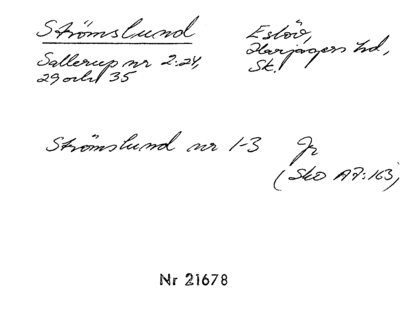 Strömslund
Eslöv,
Harjagers hd,
Sk.
Sallerup nr 2:24,
29 och 35
Strömslund nr 1-3 Jr
(Sko A7:163)
Nr 21678